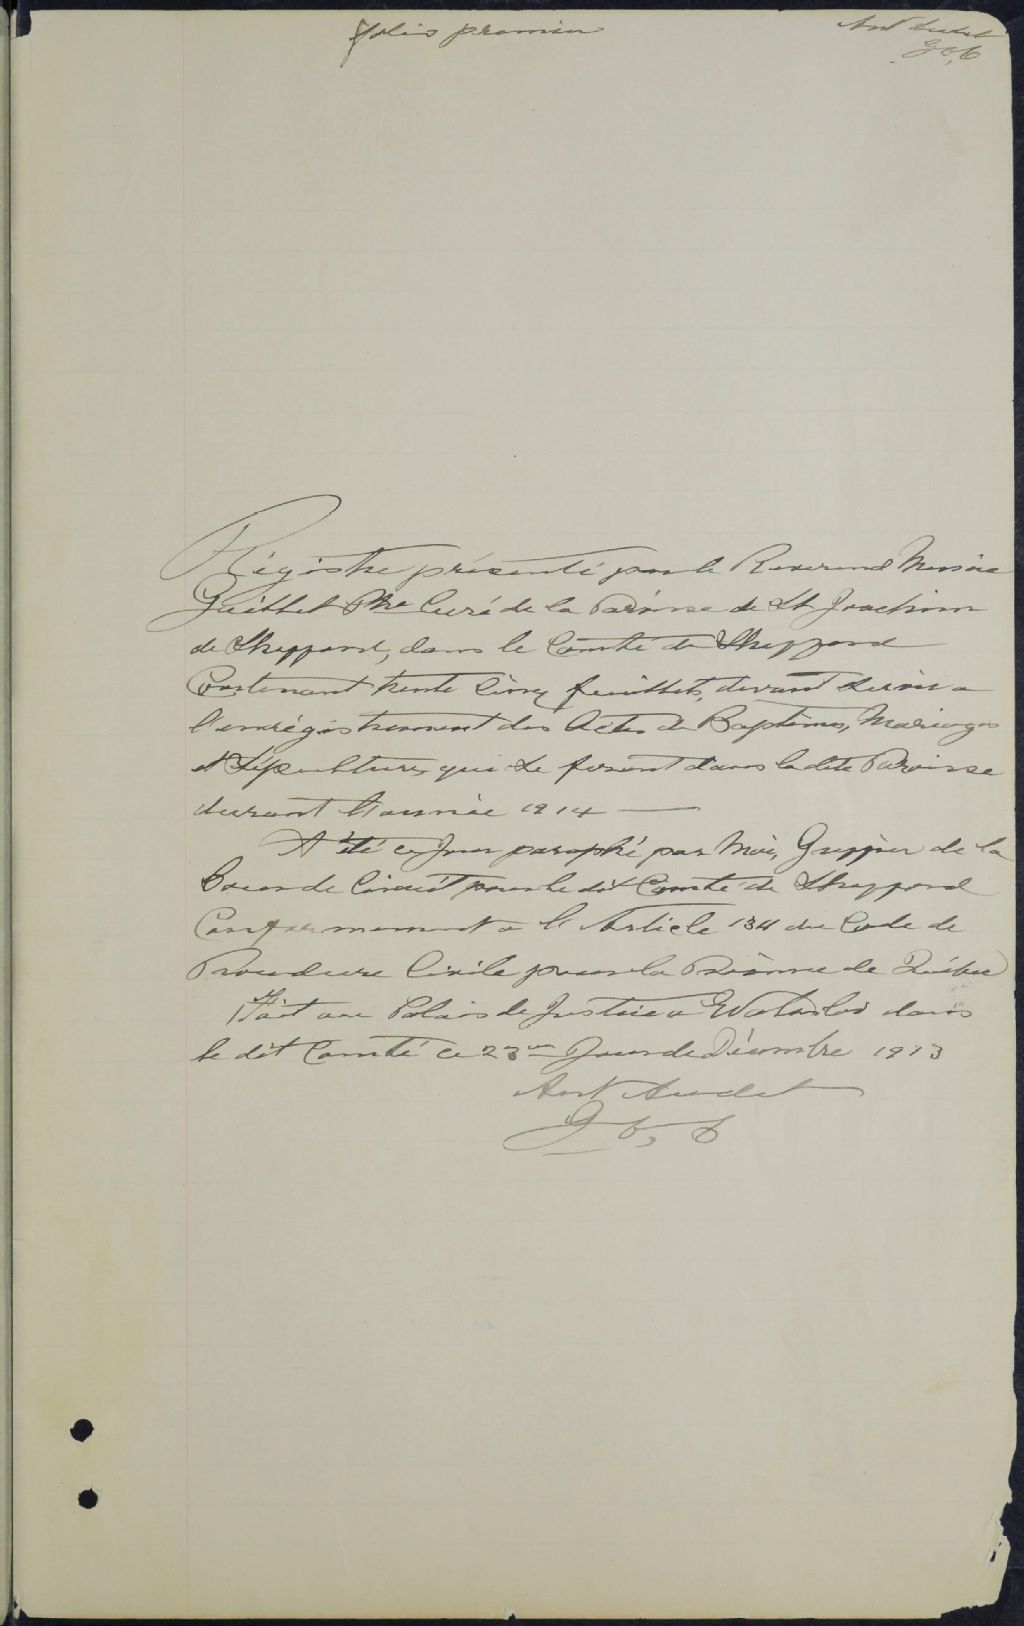 folio premier
Ant Audet
G C C
Régistre présenté par le Reverend Messire
Guillet Ptre Curé de la Paroisse de St Joachim
de Shefford, dans le Comté de Shefford
Contenant trente Cinq feuillets, devant servir a
l'enrégistrement des Actes de Baptêmes, Mariages
et Sépultures qui se feront dans la dite Paroisse
durant l'année 1914
A été ce Jour paraphé par Moi, Greffier de la
Cour de Circuit pour le dit Comté de Shefford
Conformement a l'Article 1311 du Code de
Procedure Civile pour la Province de Québec
Fait au Palais de Justice a Waterloo dans
le dit Comté ce 23me Jour de Décembre 1913
Ant Audet
G C, C